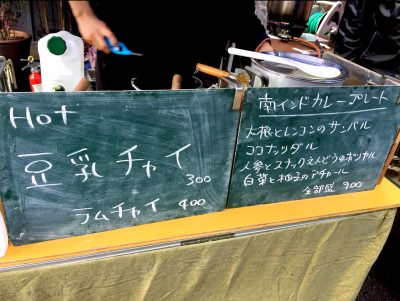 Hot
豆乳チャイ
300
ラムチャイ 400
南インドカレープレート
大根とレンコンのサンバル
ココナッツダル
人参とスナックえんどうのポリヤル
白菜と柚子のアチャール
全部盛 900